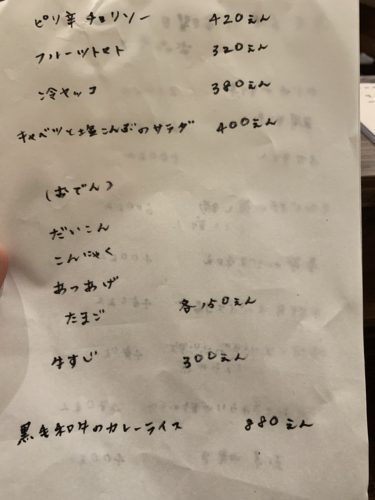 ピリ辛チョリソー 420えん
フルーツトマト 320えん
冷ヤッコ 380えん
キャベツと塩こんぶのサラダ 400えん
(おでん)
だいこん
こんにゃく
あつあげ
たまご 各150えん
牛すじ 300えん
黒毛和牛のカレーライス 880えん